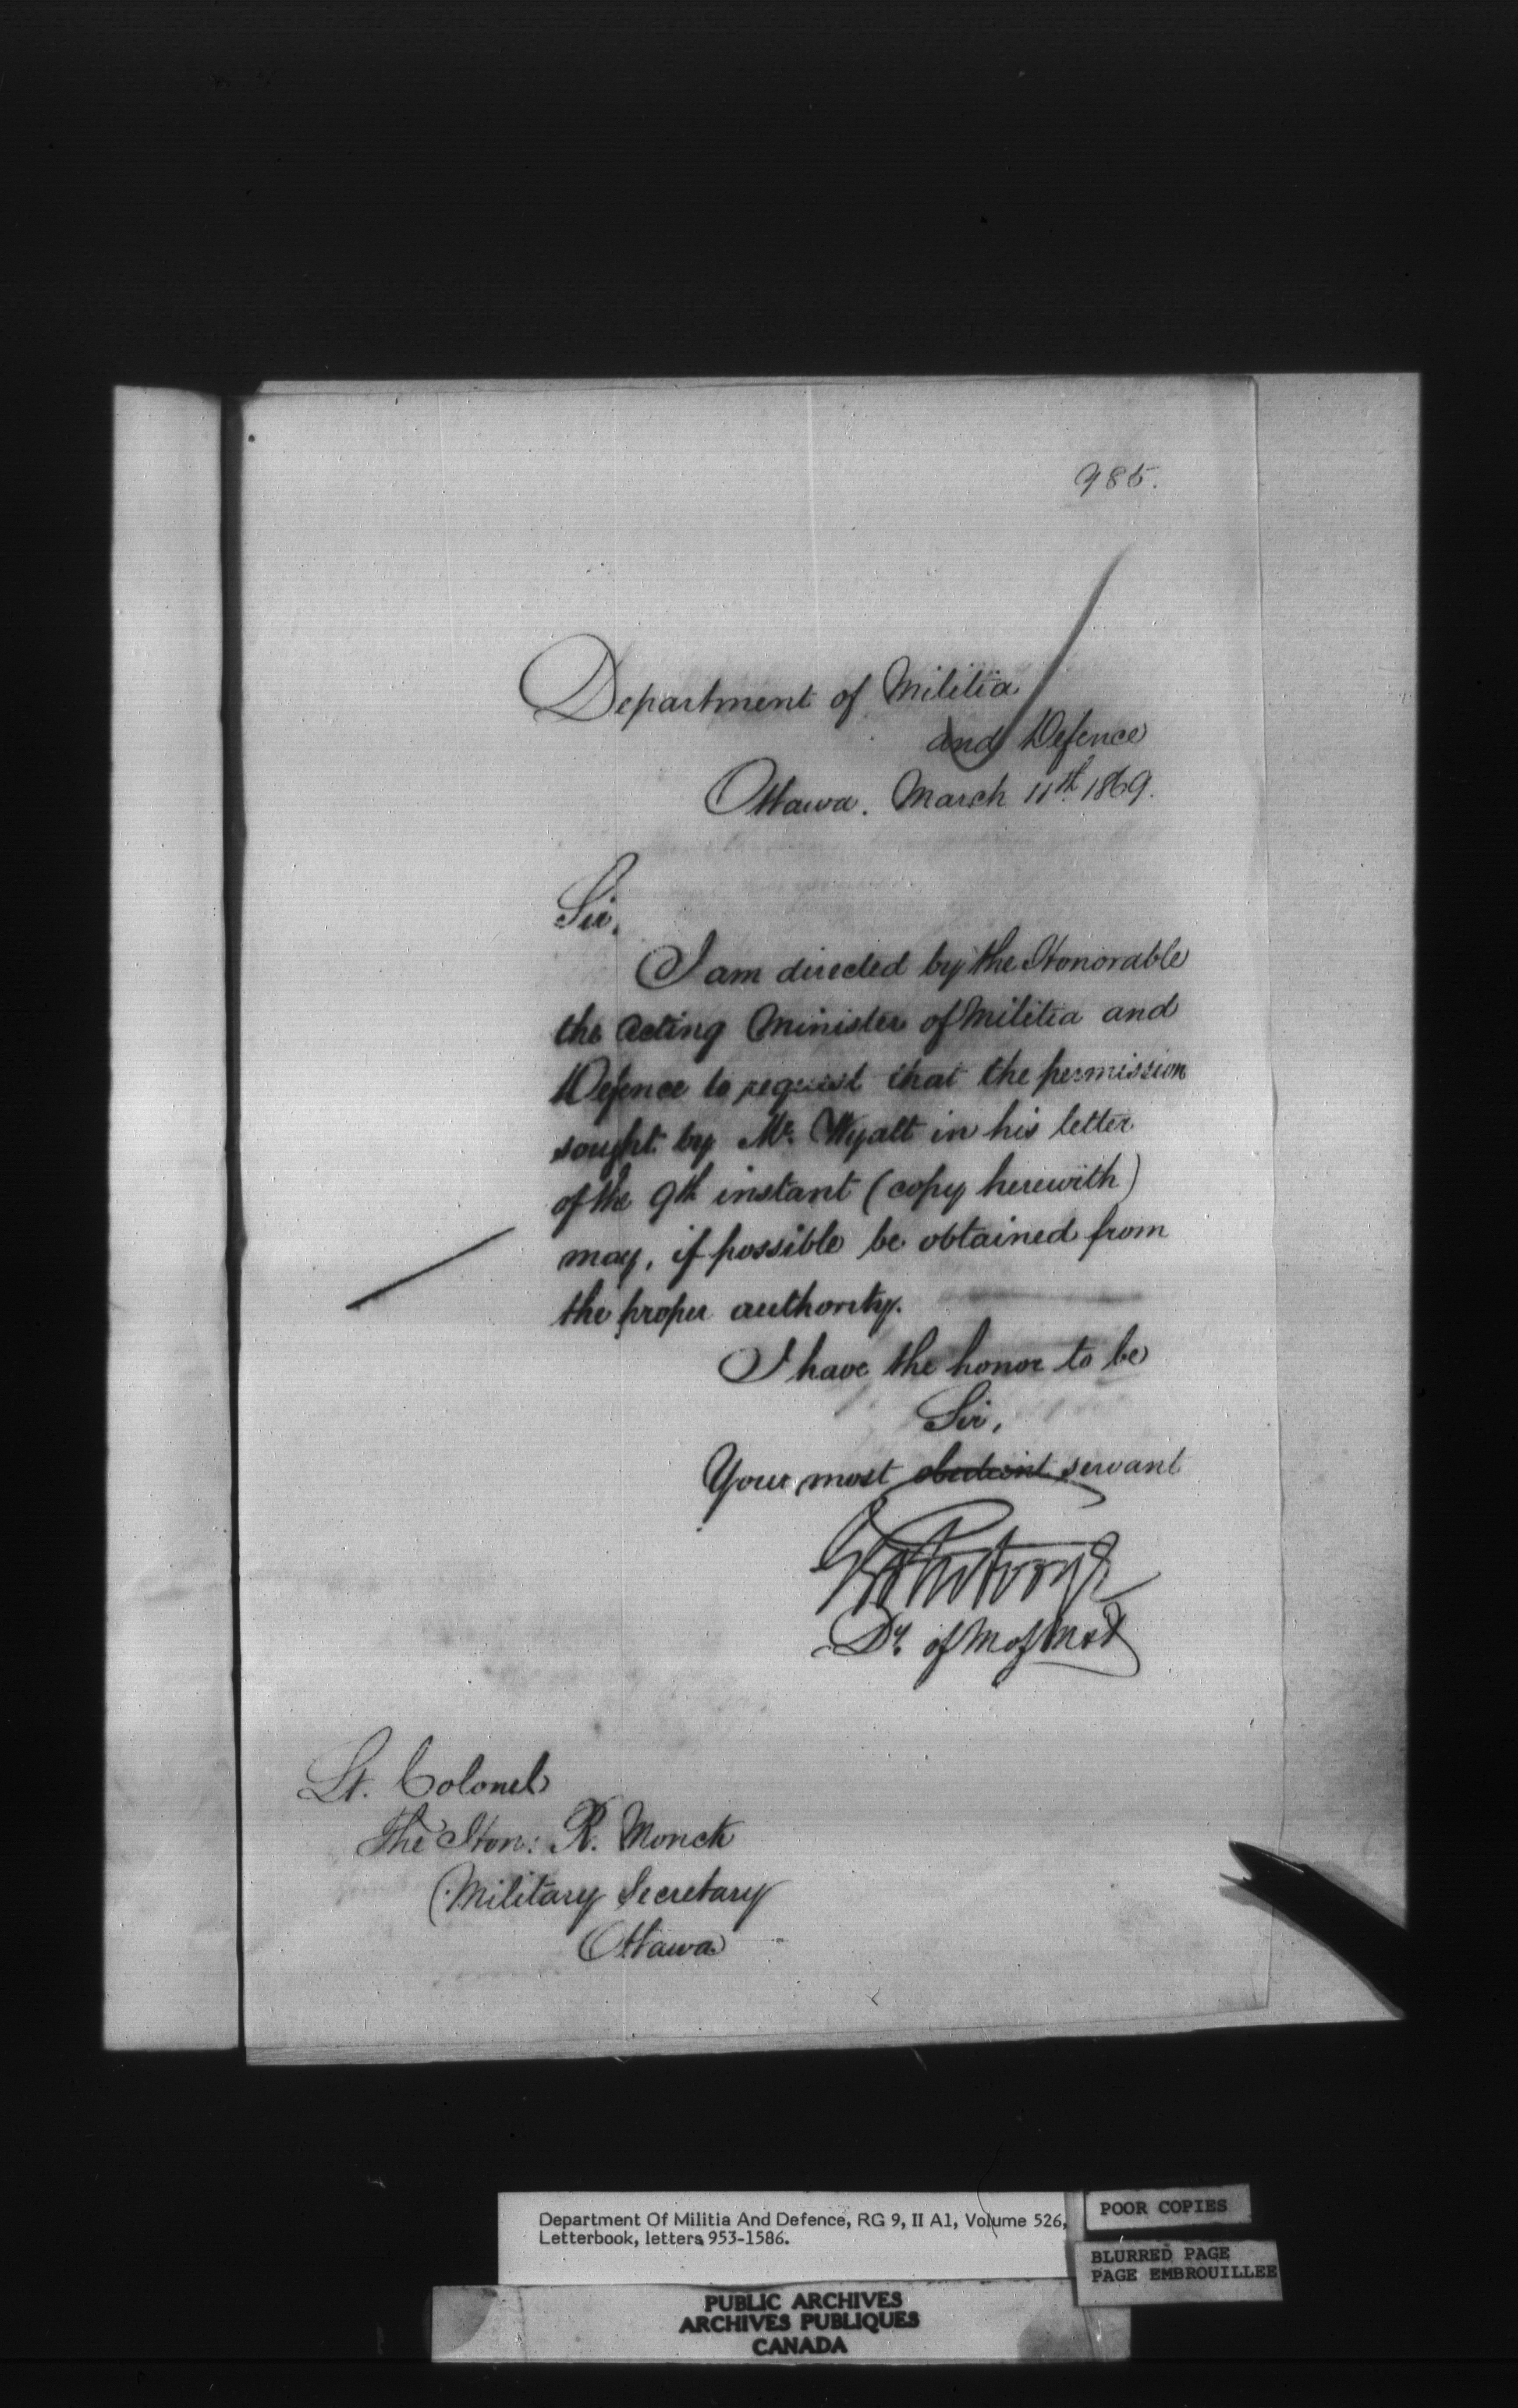 985.
Department of Militia
and Defence
Ottawa. March 11th. 1869.
Sir,
I am directed by the Honorable
the Acting Minister of Militia and
Defence to request that the permission
sought by Mr. Wyatt in his letter
of the 9th instant (copy herewith)
may, if possible be obtained from
the proper authority.
I have the honor to be
Sir,
Your most obedient servant
Dy. of M of M & D
Lt. Colonel
The Hon: R. Monck
Military Secretary
Ottawa
Department Of Militia And Defence, RG 9, II A1, Volume 526,
Letterbook, letters 953-1586.
POOR COPIES
BLURRED PAGE
PAGE EMBROUILLEE
PUBLIC ARCHIVES
ARCHIVES PUBLIQUES
CANADA